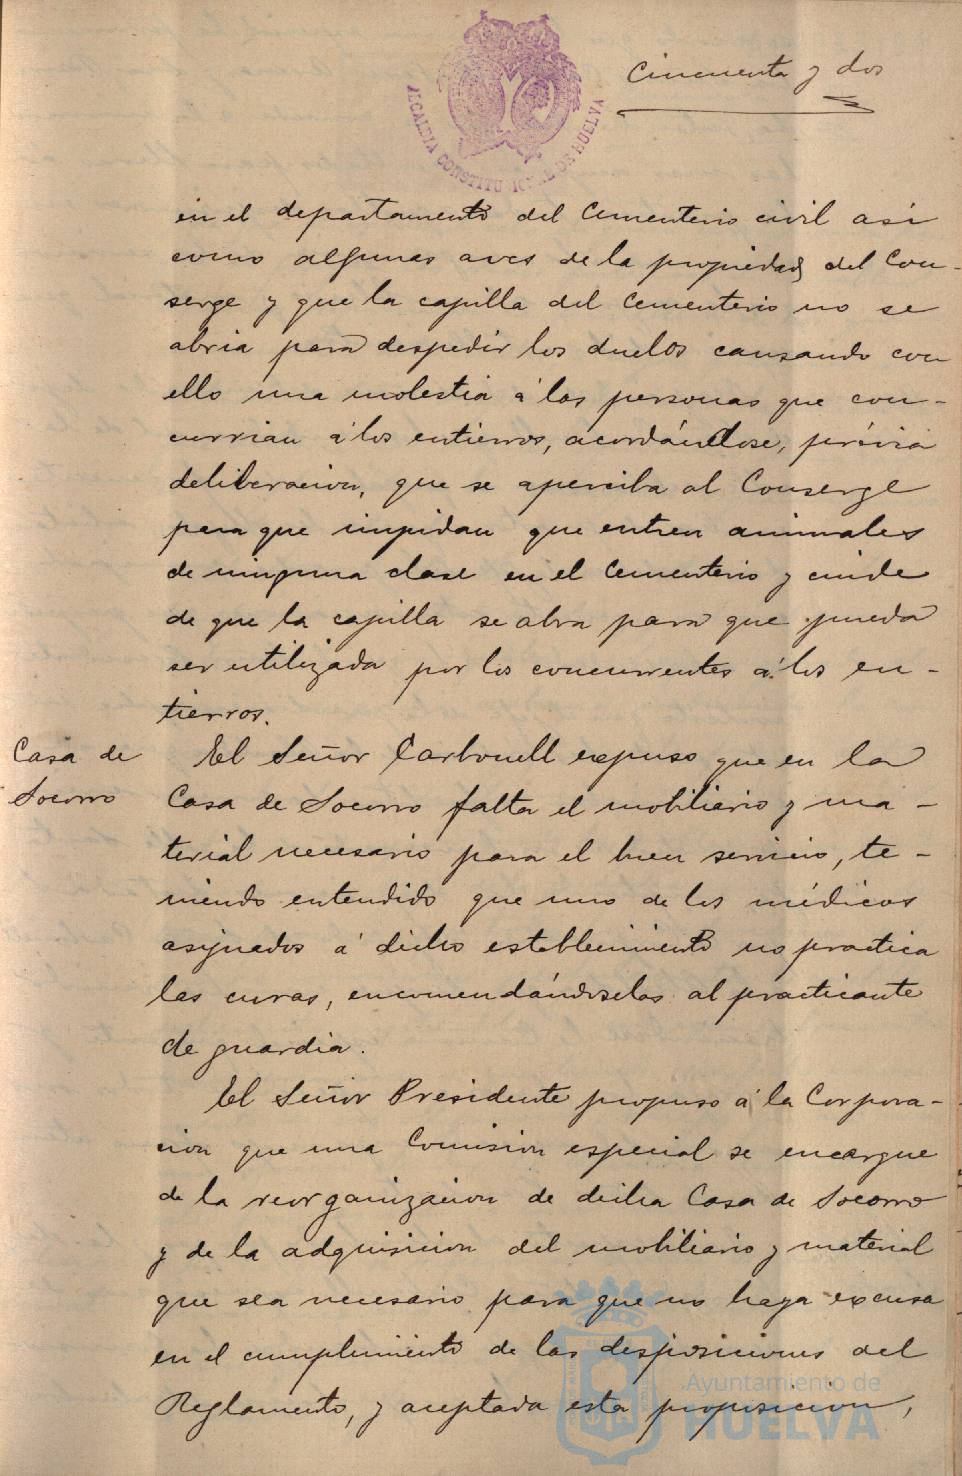 Cincuenta y dos
ALCALDIA CONSTITUCIONAL DE HUELVA
en el departamento del Cementerio civil así
como algunas aves de la propiedad del Con-
serge y que la capilla del Cementerio no se
abria para despedir los duelos causando con
ello una molestia á las personas que con-
currian á los entierros, acordándose, prévia
deliberacion, que se aperciba al Conserge
para que impidan que entren animales
de ninguna clase en el Cementerio y cuide
de que la capilla se abra para que pueda
ser utilizada por los concurrentes á los en-
tierros.
Casa de
Socorro
El Señor Carbonell expuso que en la
Casa de Socorro falta el mobiliario y ma-
terial necesario para el buen servicio, te-
niendo entendido que uno de los médicos
asignados á dicho establecimiento no practica
las curas, encomendándoselas al practicante
de guardia.
El Señor Presidente propuso á la Corpora-
cion que una Comision especial se encargue
de la reorganizacion de dicha Casa de Socorro
y de la adquisicion del mobiliario y material
que sea necesario para que no haya excusa
en el cumplimiento de las disposiciones del
Reglamento, y aceptada esta proposicion,
Ayuntamiento de
HUELVA